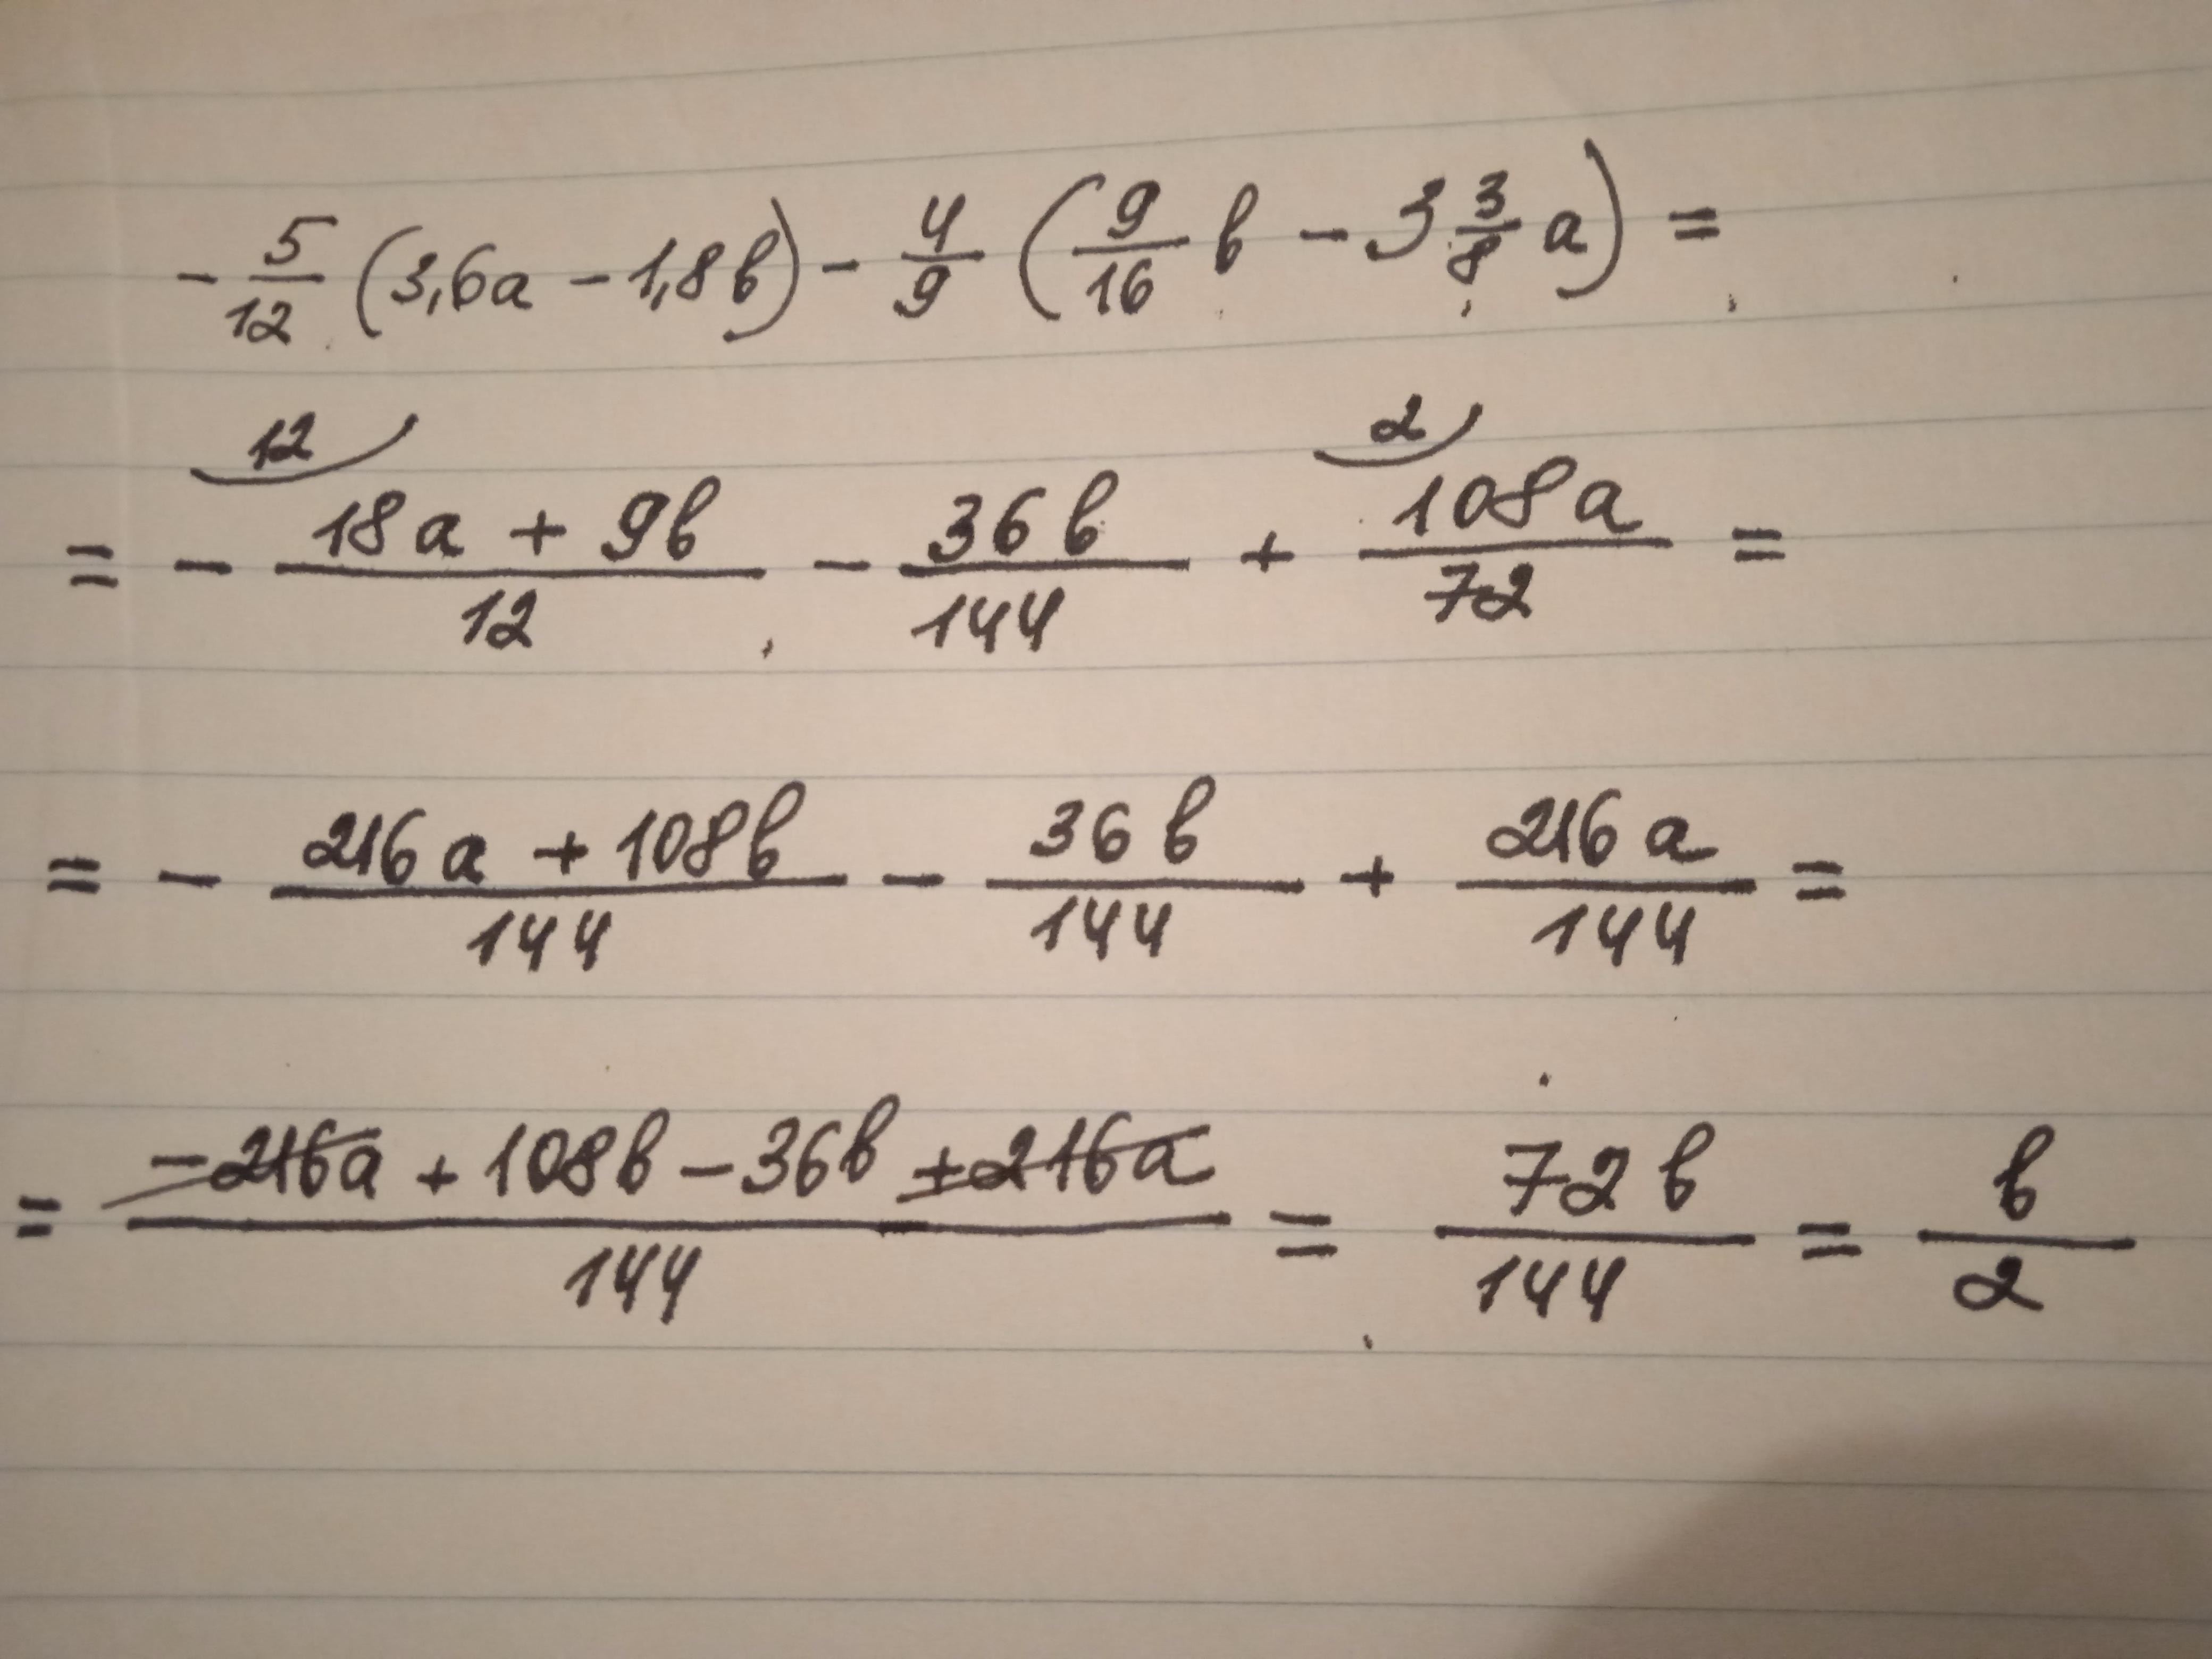 - 5/12 (3,6a - 1,8b) - 4/9 (9/16 b - 3 3/8 a) =
12 2
= - 18a + 9b/12 - 36b/144 + 108a/72 =
= - 216a + 108b/144 - 36b/144 + 216a/144 =
= -216a + 108b - 36b + 216a/144 = 72b/144 = b/2